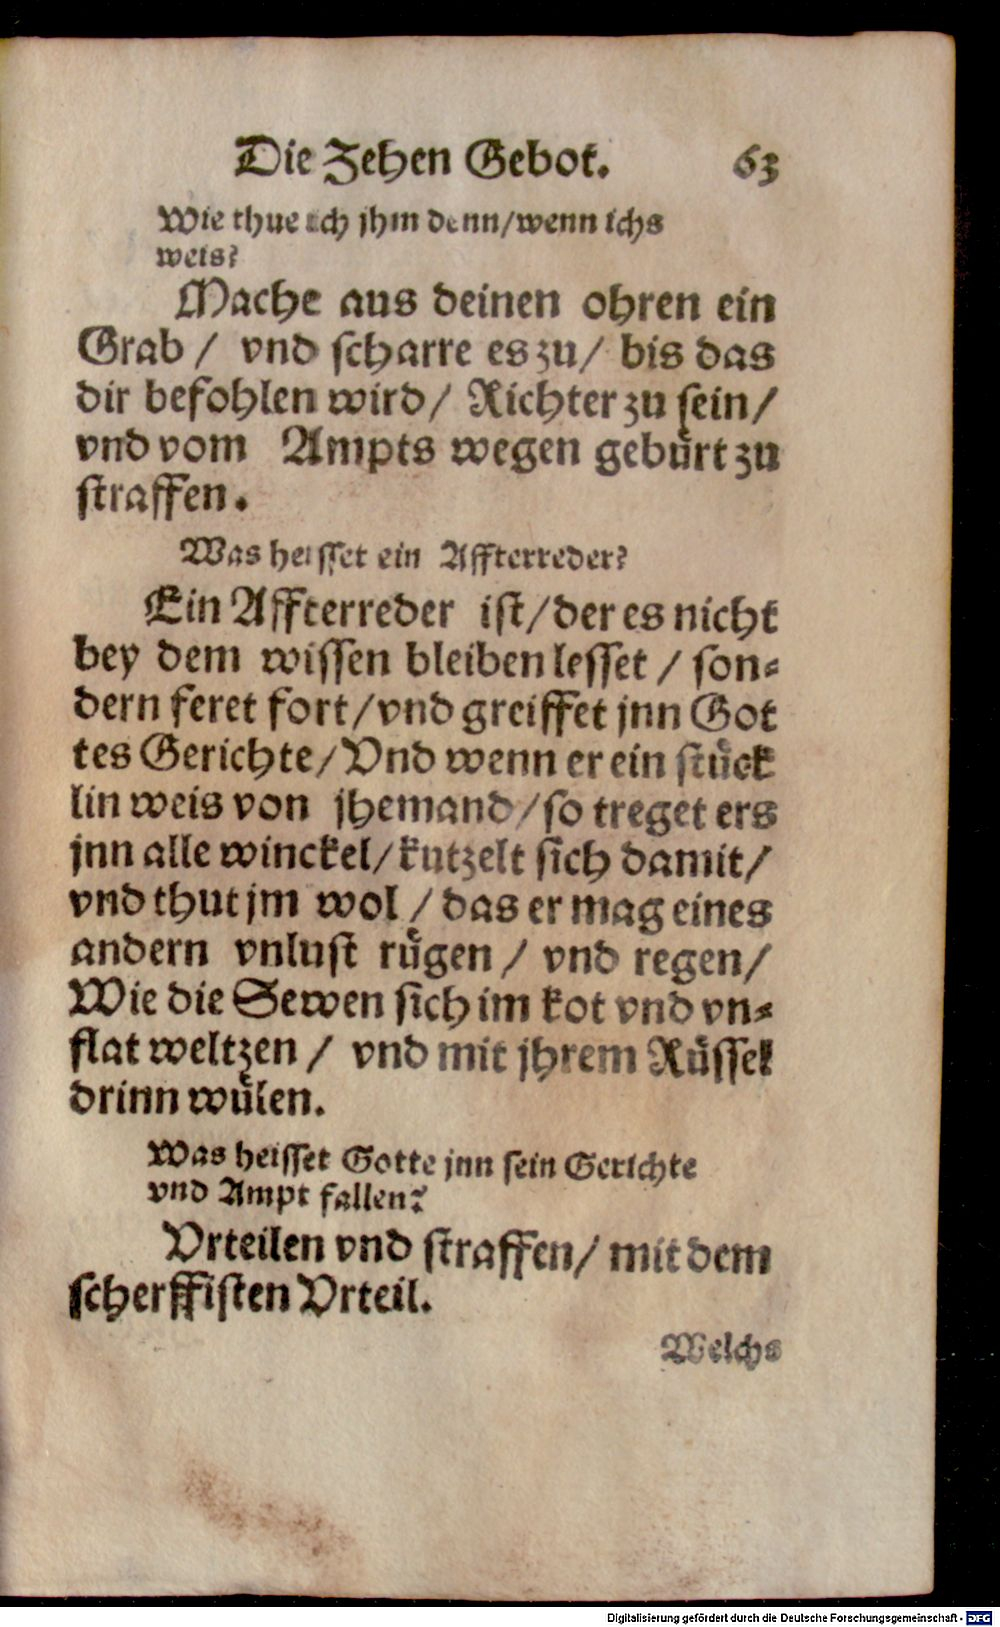 Die Zehen Gebot. 63
Wie thue ich jhm denn/wenn ichs
weis?
Mache aus deinen ohren ein
Grab / vnd scharre es zu/ bis das
dir befohlen wird/ Richter zu sein/
vnd vom Ampts wegen gebuͤrt zu
straffen.
Was heisset ein Affterreder?
Ein Affterreder ist/der es nicht
bey dem wissen bleiben lesset / son⸗
dern feret fort/vnd greiffet jnn Got
tes Gerichte/Vnd wenn er ein stuͤck
lin weis von jhemand/so treget ers
jnn alle winckel/kutzelt sich damit/
vnd thut jm wol / das er mag eines
andern vnlust ruͤgen / vnd regen/
Wie die Sewen sich im kot vnd vn⸗
flat weltzen / vnd mit jhrem Ruͤssel
drinn wuͤlen.
Was heisset Gotte jnn sein Gerichte
vnd Ampt fallen?
Vrteilen vnd straffen/ mit dem
scherffisten Vrteil.
Welchs
Digitalisierung gefördert durch die Deutsche Forschungsgemeinschaft - DFG